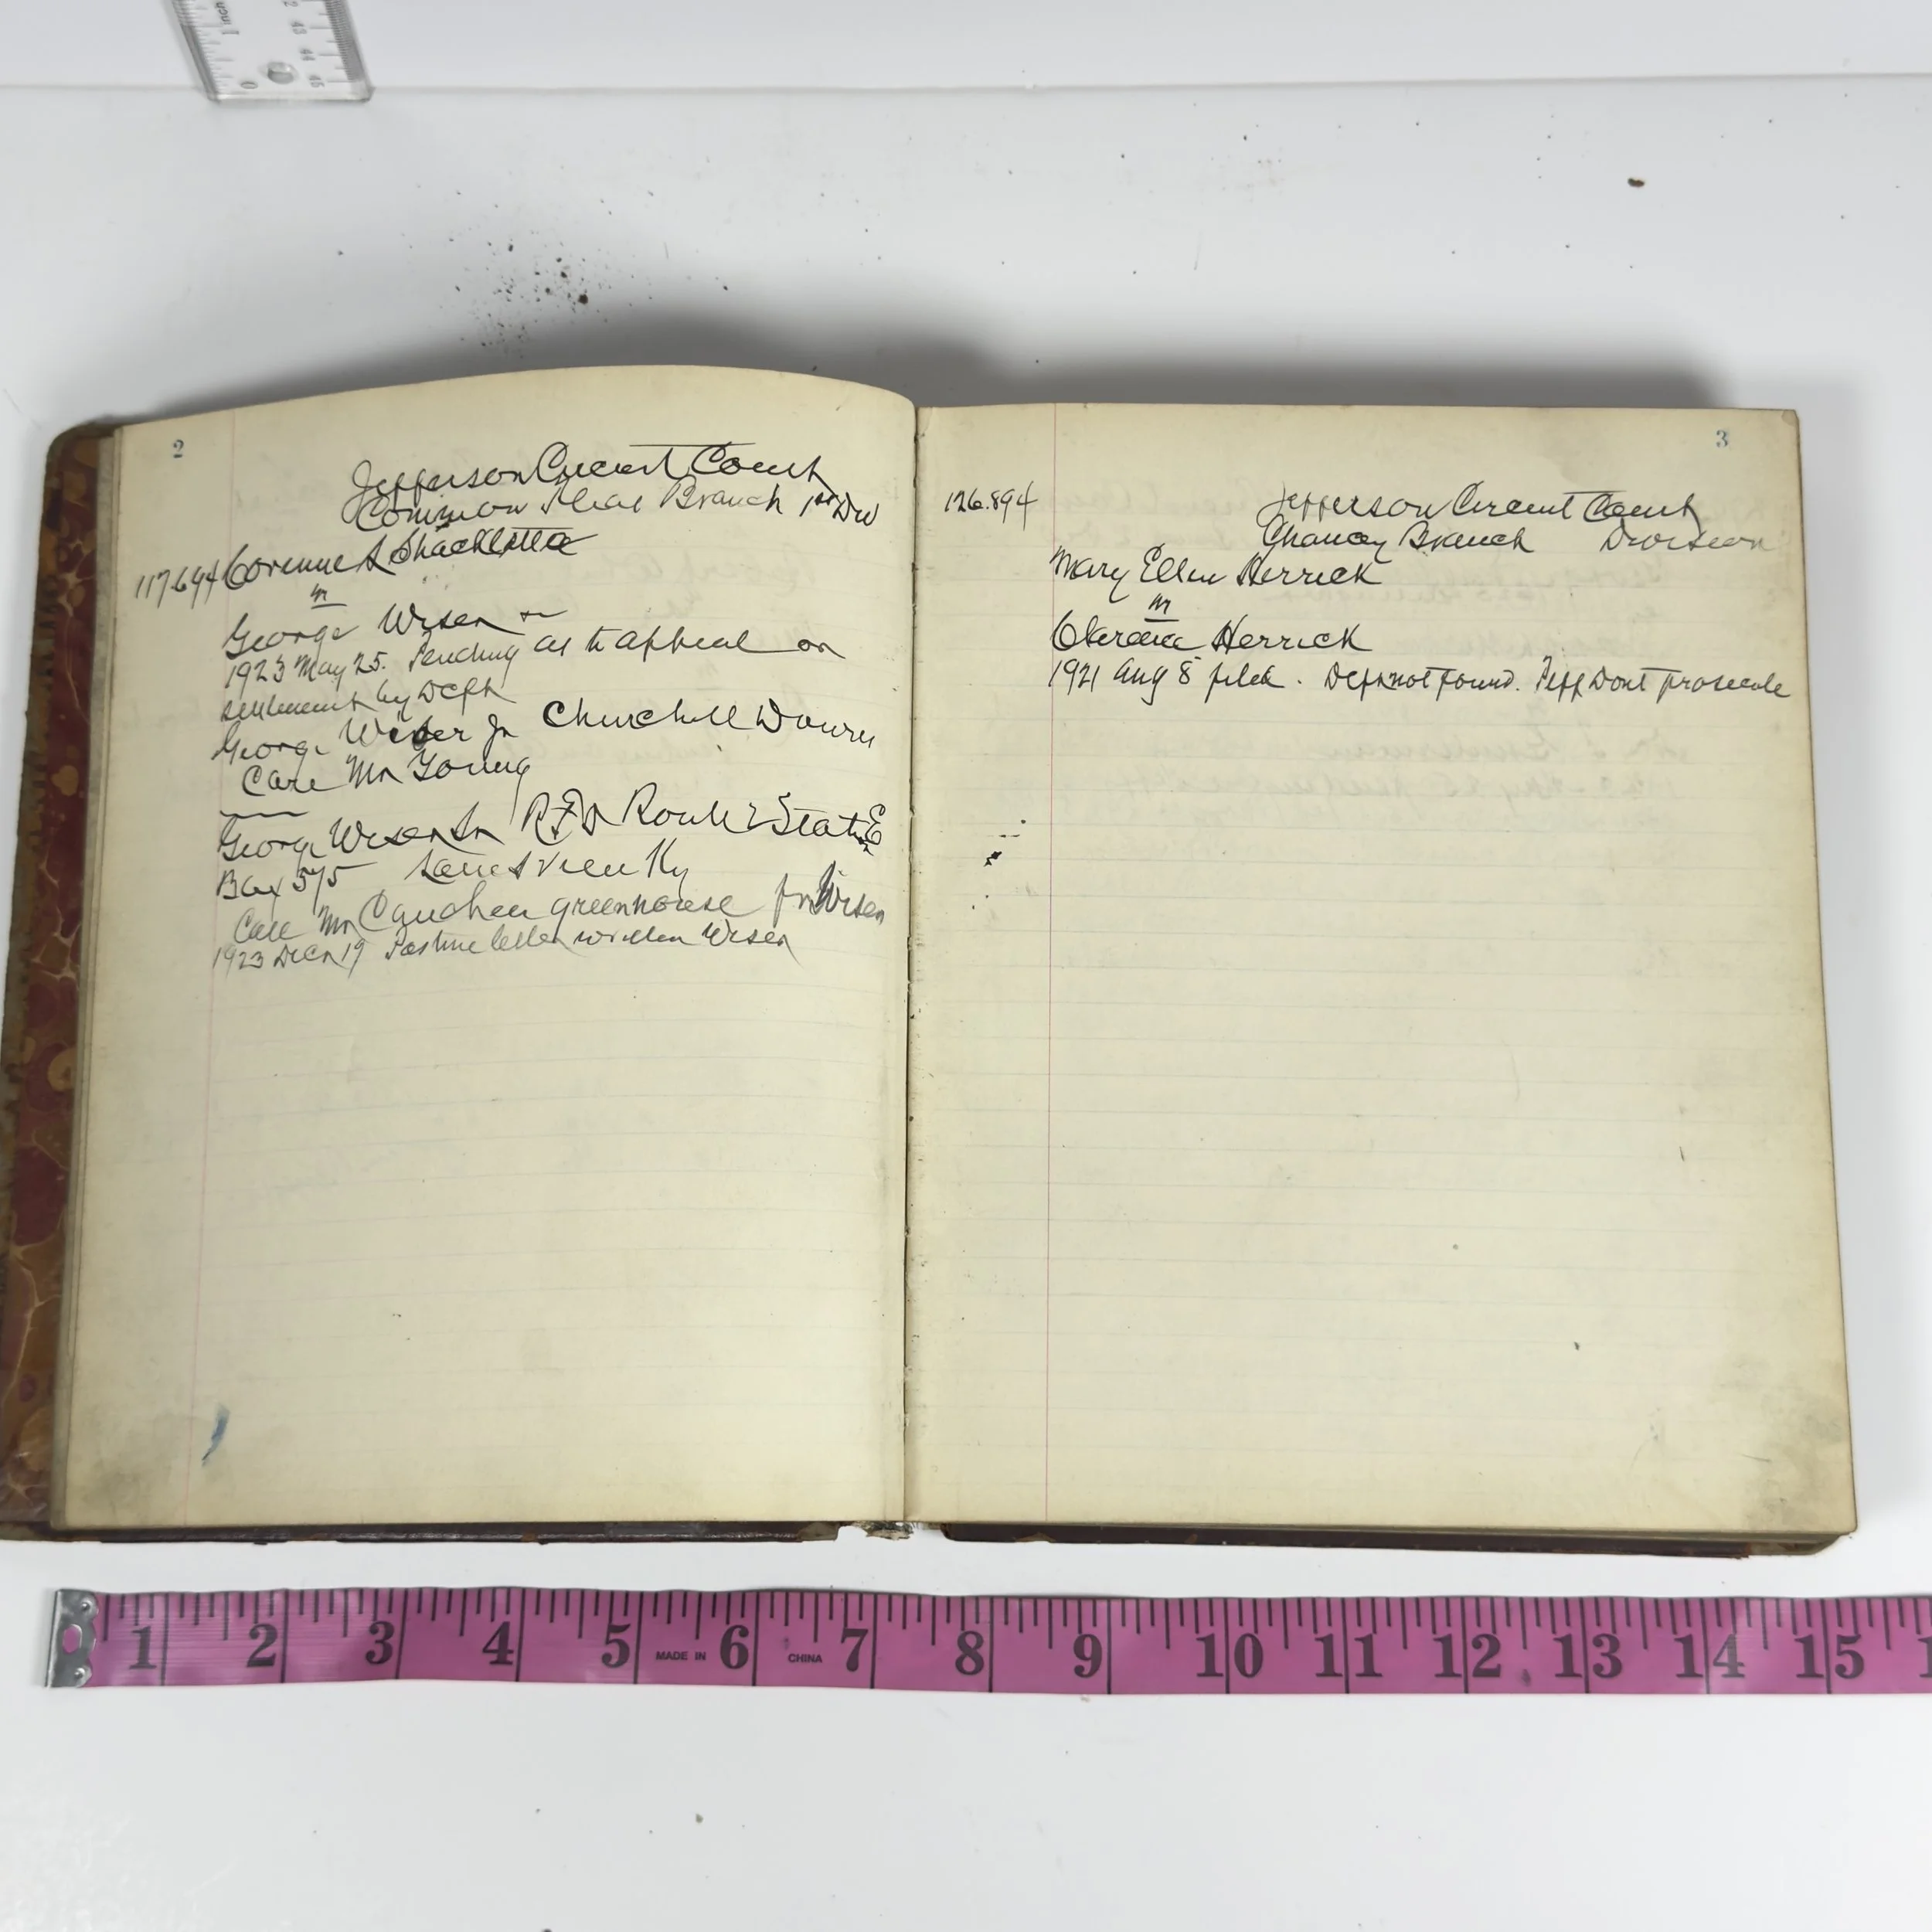 2
Jefferson Circuit Court
Common Pleas Branch 1st Div
117694 Corinne S Shacklette
vs
George Wiser
1923 May 25. Pending as to appeal or
settlement by Deft
George Wiser Jr Churchill Downs
Care Mr Young
George Wiser Sr RFD Route 2 Stat E
Box 575 Ky
Care Mr greenhouse for Wiser
1923 Decr 19 letter written Wiser
3
126.894 Jefferson Circuit Court
Chancy Branch Division
Mary Ellen Herrick
vs
Clarence Herrick
1921 Aug 8 filed. Deft not found. Plff Dont prosecute
1 2 3 4 5 MADE IN 6 CHINA 7 8 9 10 11 12 13 14 15